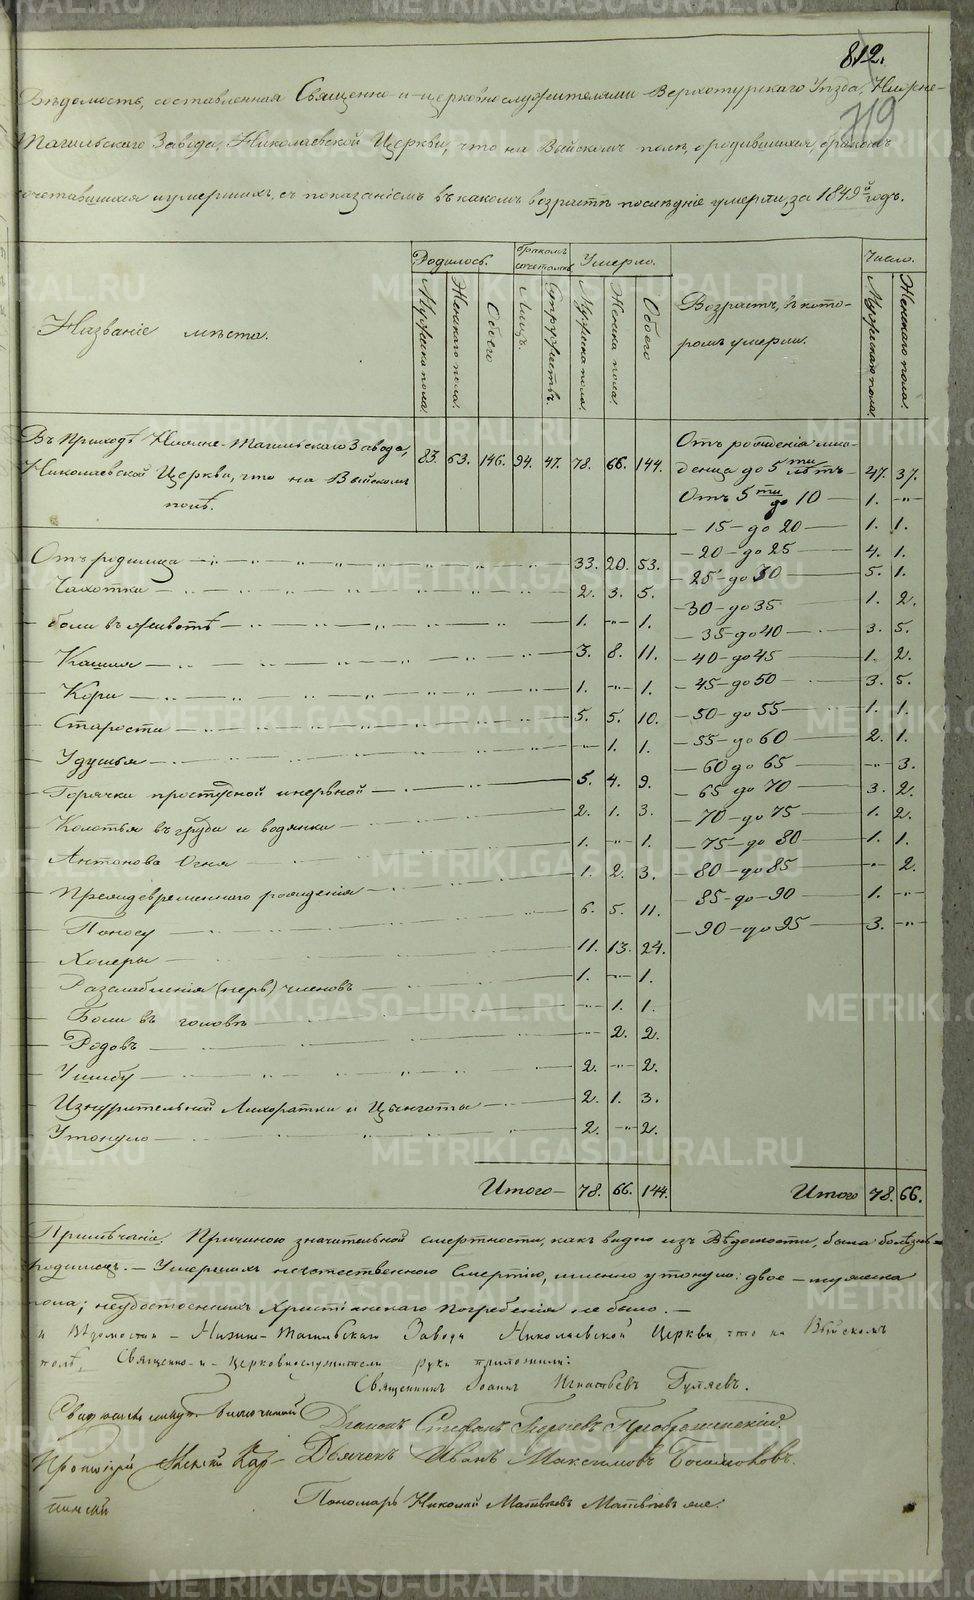 812.
719
Вѣдомость, составленная Священно-и-церковнослужителями Верхотурскаго Уѣзда, Нижне-
Тагильскаго Завода, Николаевской Церкви, что на Выйскомъ полѣ, о родившихся, бракомъ
сочетавшихся и умершихъ, съ показаніемъ въ какомъ возрастѣ послѣдніе умерли, за 1849й годъ.
Названіе мѣста.
Родилось.
Мужеска пола.
Женскаго пола.
Обоего
бракомъ сочетались
Лицъ.
Супружествъ.
Умерло.
Мужеска пола.
Женска пола.
Обоего
Возрастъ, въ кото-
ромъ умерли.
Число.
Мужескаго пола.
Женскаго пола.
Въ Приходѣ Нижне-Тагильскаго Завода,
Николаевской Церкви, что на Выйскомъ
полѣ. 83. 63. 146. 94. 47. 78. 66. 144.
Отъ рожденія мла-
денца до 5ти лѣтъ 47. 37.
Отъ 5ти до 10 — 1. -"-
— 15 — до 20 — 1. 1.
— 20 — до 25 — 4. 1.
— 25 — до 30 — 5. 1.
— 30 — до 35 — 1. 2.
— 35 — до 40 — 3. 5.
— 40 — до 45 — 1. 2.
— 45 — до 50 — 3. 5.
— 50 — до 55 — 1. 1.
— 55 — до 60 — 2. 1.
— 60 до 65 — -"- 3.
— 65 до 70 — 3. 2.
— 70 — до 75 — 1. 2.
— 75 — до 80 — 1. 1.
— 80 — до 85 — -"- 2.
— 85 — до — 90 — 1. -"-
— 90 — до 95 — 3. -"-
Отъ родимца — 33. 20. 53.
— Чахотки — 2. 3. 5.
— боли въ животѣ — 1. -"- 1.
— Кашля — 3. 8. 11.
— Кори — 1. -"- 1.
— Старости — 5. 5. 10.
— Удушья — -"- 1. 1.
— Горячки простудной и нервной — 5. 4. 9.
— Колотья въ груди и водянки — 2. 1. 3.
— Антонова Огня 1. -"- 1.
— Преждевременнаго рожденія — 1. 2. 3.
— Поносу — 6. 5. 11.
— Холеры — 11. 13. 24.
— Разслабленія (нерв) членовъ 1. -"- 1.
— Боли въ головѣ -"- 1. 1.
— Родовъ — -"- 2. 2.
— Ушибу — 2. -"- 2.
— Изнурительной Лихоратки и Цынготы — 2. 1. 3.
— Утонуло — 2. -"- 2.
Итого — 78. 66. 144.
Итого 78. 66.
Примѣчаніе. Причиною значительной смертности, какъ видно изъ Вѣдомости, была болѣзнь
родимецъ. — Умершихъ неестественною Смертію, именно утонуло: двое — мужеска
пола; неудостоенныхъ Христіанскаго погребенія не было. —
Вѣдомости — Нижне-Тагильскаго Завода Николаевской Церкви, что на Выйскомъ
полѣ, Священно-и-Церковнослужители руки приложили:
Священникъ Іоаннъ Игнатьевъ Гуляевъ.
Діаконъ Стефанъ Преображенскій
Дьячекъ Иванъ Максимовъ Богомоловъ.
Протоіерей
Пономарь Николай Матвѣевъ
METRIKI.GASO-URAL.RU